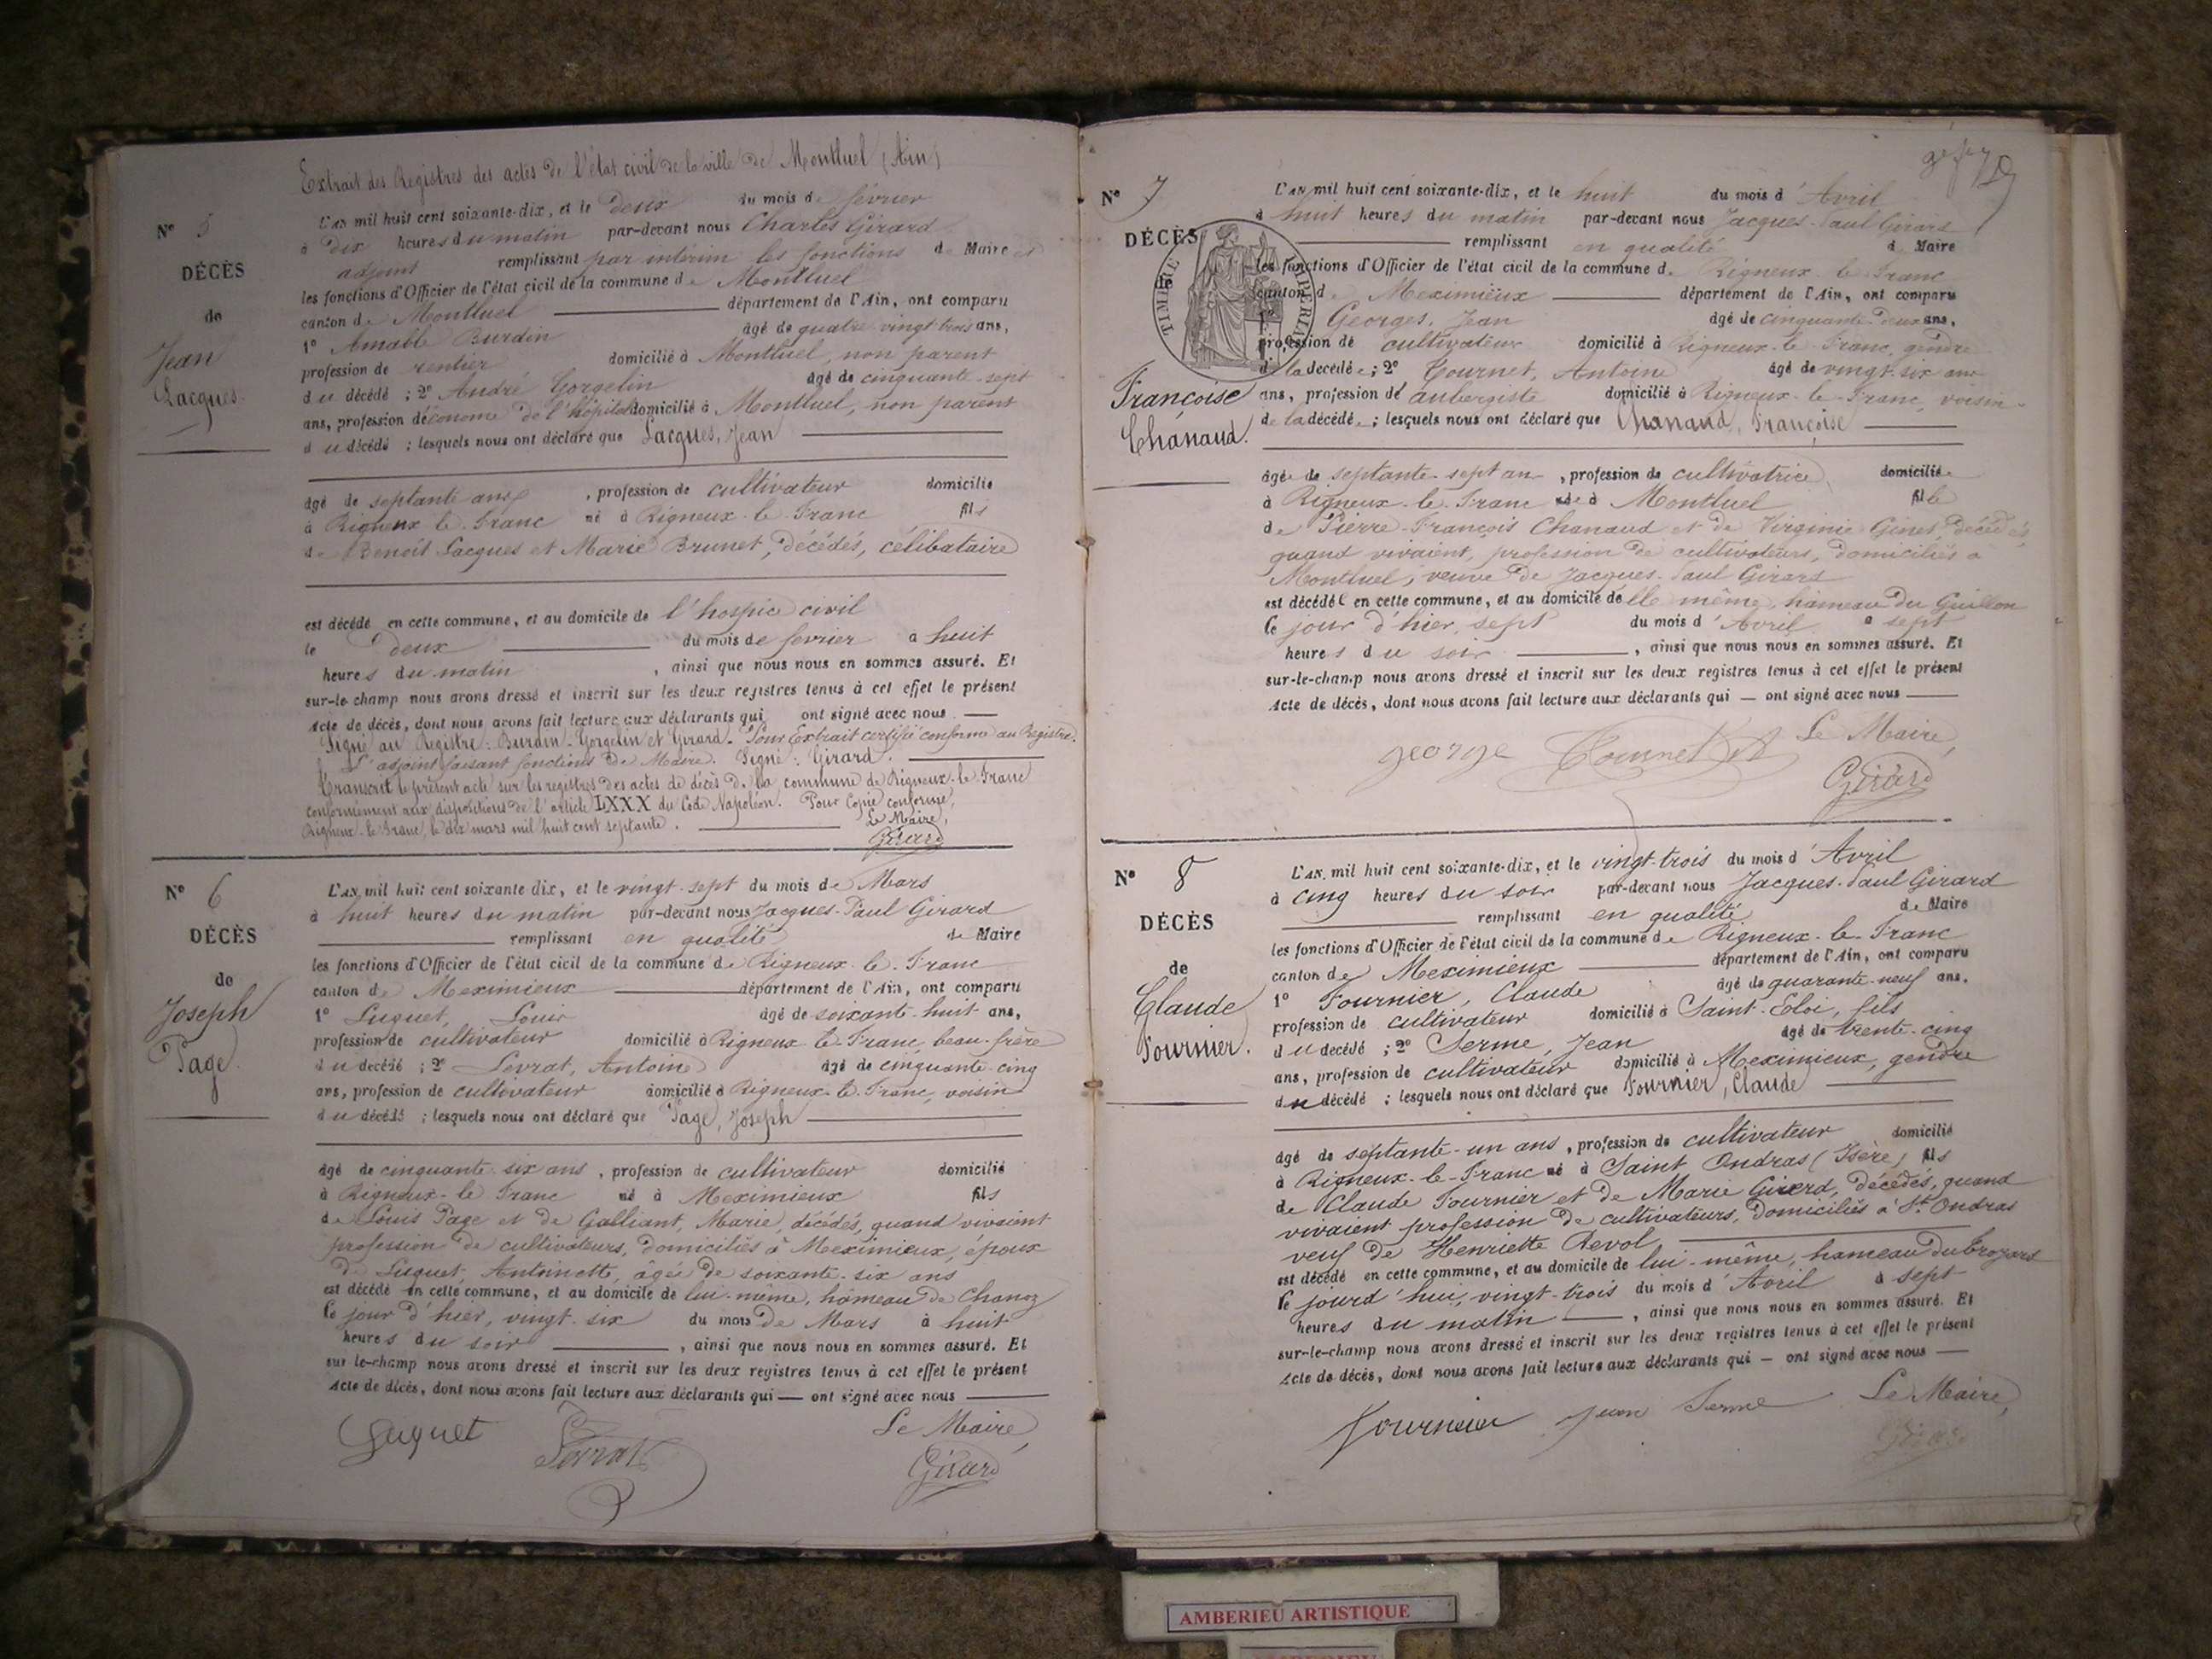 Extrait des Registres des actes de l'état civil de la ville de Montluel (Ain)
N° 5
DÉCÈS
de
Jean
Jacques
L'AN mil huit cent soixante-dix, et le deux du mois de février
à dix heures du matin par-devant nous Charles Girard
adjoint remplissant par intérim les fonctions de Maire et
les fonctions d'Officier de l'état civil de la commune de Montluel
canton de Montluel département de l'Ain, ont comparu
1° Amable Burdin âgé de quatre-vingt-trois ans,
profession de rentier domicilié à Montluel, non parent
du décédé ; 2° André Gorgelin âgé de cinquante-sept
ans, profession d'économe de l'hôpital domicilié à Montluel, non parent
du décédé ; lesquels nous ont déclaré que Jacques, Jean
âgé de septante ans, profession de cultivateur domicilié
à Rigneux-le-Franc né à Rigneux-le-Franc fils
de Benoit Jacques et Marie Brunet, décédés, célibataire
est décédé en cette commune, et au domicile de l'hospice civil
le deux du mois de février à huit
heures du matin, ainsi que nous nous en sommes assuré. Et
sur-le-champ nous avons dressé et inscrit sur les deux registres tenus à cet effet le présent
Acte de décès, dont nous avons fait lecture aux déclarants qui ont signé avec nous
Signé au Registre : Burdin - Gorgelin et Girard. Pour Extrait certifié conforme au Registre.
L'adjoint faisant fonctions de Maire. Signé : Girard.
Transcrit le présent acte sur les registres des actes de décès de la commune de Rigneux-le-Franc
conformément aux dispositions de l'article LXXX du Code Napoléon. Pour Copie conforme,
Rigneux-le-Franc, le dix mars mil huit cent septante.
Le Maire,
Girard
N° 6
DÉCÈS
de
Joseph
Page
L'AN mil huit cent soixante-dix, et le vingt-sept du mois de Mars
à huit heures du matin par-devant nous Jacques-Paul Girard
remplissant en qualité de Maire
les fonctions d'Officier de l'état civil de la commune de Rigneux-le-Franc
canton de Meximieux département de l'Ain, ont comparu
1° Luquet, Louis âgé de soixante-huit ans,
profession de cultivateur domicilié à Rigneux-le-Franc, beau-frère
du décédé ; 2° Levrat, Antoine âgé de cinquante-cinq
ans, profession de cultivateur domicilié à Rigneux-le-Franc, voisin
du décédé ; lesquels nous ont déclaré que Page, Joseph
âgé de cinquante-six ans, profession de cultivateur domicilié
à Rigneux-le-Franc né à Meximieux fils
de Louis Page et de Galliant, Marie, décédés, quand vivaient
profession de cultivateurs, domiciliés à Meximieux, époux
de Luquet Antoinette, âgée de soixante-six ans
est décédé en cette commune, et au domicile de lui-même, hameau de Chanoz
le jour d'hier, vingt-six du mois de Mars à huit
heures du soir, ainsi que nous nous en sommes assuré. Et
sur-le-champ nous avons dressé et inscrit sur les deux registres tenus à cet effet le présent
Acte de décès, dont nous avons fait lecture aux déclarants qui — ont signé avec nous
Luquet Levrat
Le Maire,
Girard
N° 7
DÉCÈS
de
TIMBRE IMPÉRIAL
Françoise
Chanaud.
L'AN mil huit cent soixante-dix, et le huit du mois d'Avril
à huit heures du matin par-devant nous Jacques-Paul Girard
remplissant en qualité de Maire
les fonctions d'Officier de l'état civil de la commune de Rigneux-le-Franc
canton de Meximieux département de l'Ain, ont comparu
1° Georges, Jean âgé de cinquante-deux ans,
profession de cultivateur domicilié à Rigneux-le-Franc, gendre
de la décédée ; 2° Tournet, Antoine âgé de vingt-six ans
ans, profession d'aubergiste domicilié à Rigneux-le-Franc, voisin
de la décédée ; lesquels nous ont déclaré que Chanaud, Françoise
âgée de septante-sept ans, profession de cultivatrice domiciliée
à Rigneux-le-Franc née à Montluel fille
de Pierre-François Chanaud et de Virginie Genet, décédés,
quand vivaient, profession de cultivateurs, domiciliés à
Montluel, veuve de Jacques-Paul Girard
est décédée en cette commune, et au domicile de elle même, hameau du Guillon
le jour d'hier, sept du mois d'Avril à sept
heures du soir, ainsi que nous nous en sommes assuré. Et
sur-le-champ nous avons dressé et inscrit sur les deux registres tenus à cet effet le présent
Acte de décès, dont nous avons fait lecture aux déclarants qui — ont signé avec nous
george Tournet
Le Maire,
Girard
N° 8
DÉCÈS
de
Claude
Fournier.
L'AN mil huit cent soixante-dix, et le vingt-trois du mois d'Avril
à cinq heures du soir par-devant nous Jacques-Paul Girard
remplissant en qualité de Maire
les fonctions d'Officier de l'état civil de la commune de Rigneux-le-Franc
canton de Meximieux département de l'Ain, ont comparu
1° Fournier, Claude âgé de quarante-neuf ans,
profession de cultivateur domicilié à Saint-Eloi, fils
du décédé ; 2° Serme, Jean âgé de trente-cinq
ans, profession de cultivateur domicilié à Meximieux, gendre
du décédé ; lesquels nous ont déclaré que Fournier, Claude
âgé de septante-un ans, profession de cultivateur domicilié
à Rigneux-le-Franc né à Saint Ondras (Isère) fils
de Claude Fournier et de Marie Girerd, décédés, quand
vivaient profession de cultivateurs, domiciliés à St Ondras
veuf de Henriette Revol
est décédé en cette commune, et au domicile de lui-même, hameau du
le jourd'hui, vingt-trois du mois d'Avril à sept
heures du matin, ainsi que nous nous en sommes assuré. Et
sur-le-champ nous avons dressé et inscrit sur les deux registres tenus à cet effet le présent
Acte de décès, dont nous avons fait lecture aux déclarants qui — ont signé avec nous
Fournier Jean Serme
Le Maire,
Girard
AMBERIEU ARTISTIQUE